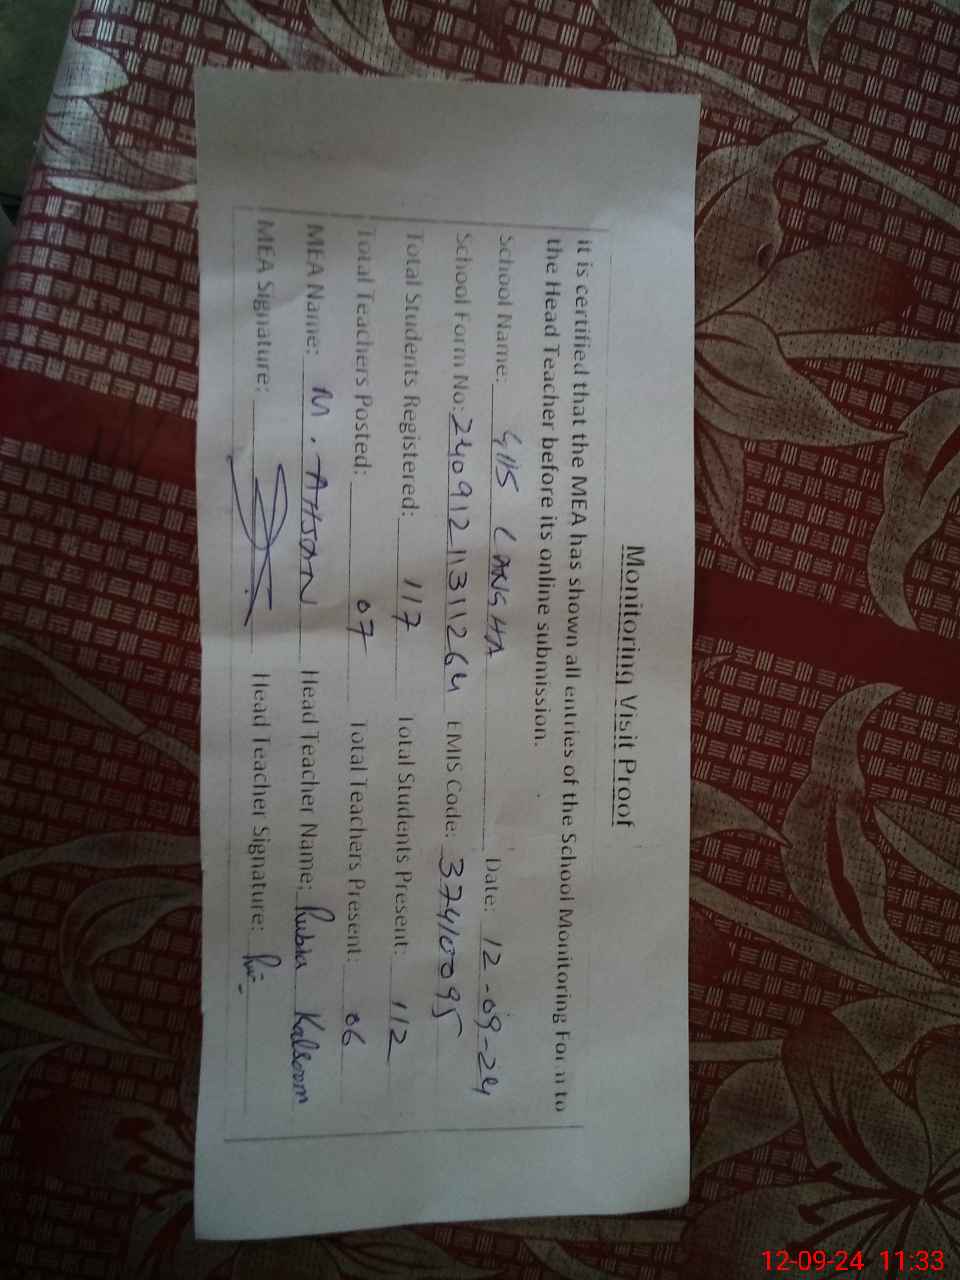 Monitoring Visit Proof
it is certified that the MEA has shown all entries of the School Monitoring Form to
the Head Teacher before its online submission.
School Name: GHS LANGHA Date: 12-09-24
School Form No: 24091211311264 EMIS Code: 37410095
Total Students Registered: 117 Total Students Present: 112
Total Teachers Posted: 07 Total Teachers Present: 06
MEA Name: M. AHSAN Head Teacher Name: Rubia Kalsoom
MEA Signature: Head Teacher Signature:
12-09-24 11:33